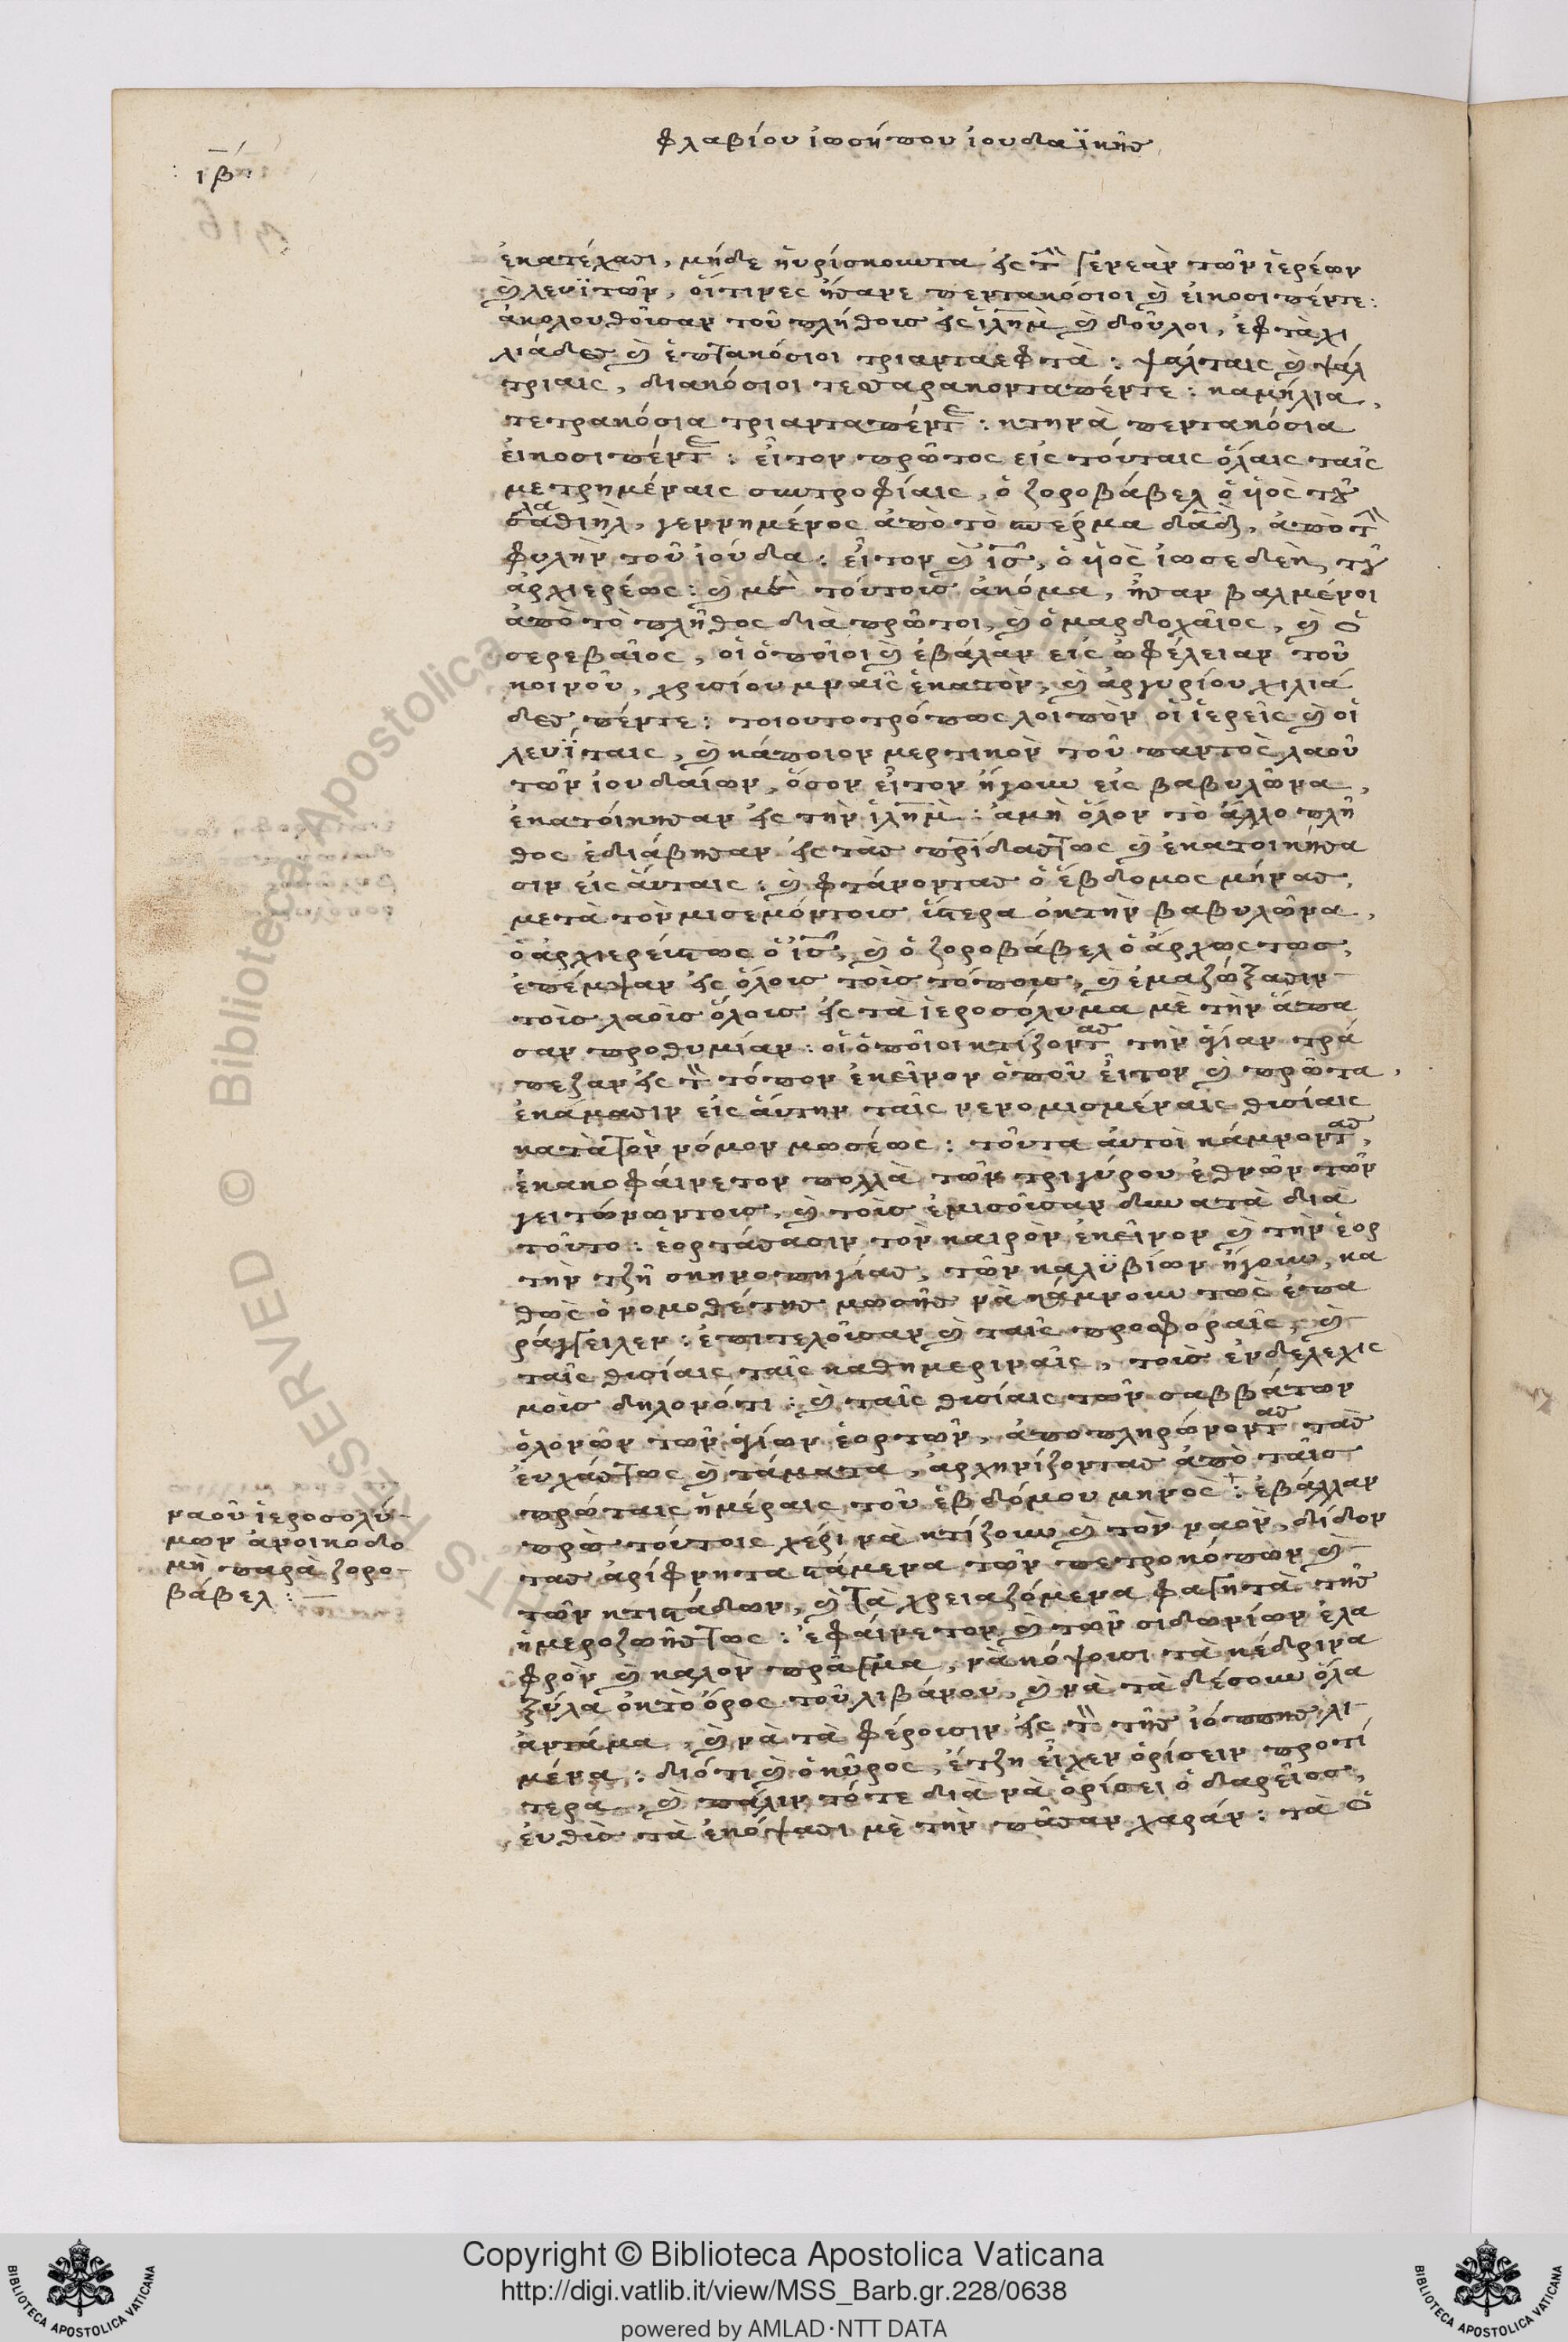 φλαβίου ἰωσήπου ἰουδαϊκῆς
: ιβ :
ἐκατέχασι, μήδε ηὑρίσκουντα ἐς τὴν γενεὰν τῶν ἱερέων
καὶ λευϊτῶν, οἵτινες ἤσανε πεντακόσιοι καὶ εἰκοσιπέντε :
ἀκολουθοῦσαν τοῦ πλήθους ἐς ἱλημ καὶ δοῦλοι, ἑφτὰ χι
λιάδες καὶ ἑπτακόσιοι τριανταεφτὰ : ψάλταις καὶ ψάλ
τριαις, διακόσιοι τεσσαρακονταπέντε : καμήλια,
τετρακόσια τριανταπέντε : κτηνὰ πεντακόσια
εἰκοσιπέντε : εἶτον πρῶτος εἰς τούταις ὅλαις ταῖς
μετρημέναις συντροφίαις, ὁ ζοροβάβελ ὁ ὑιὸς τοῦ
σαλαθιὴλ, γεννημένος ἀπὸ τὸ σπέρμα δαδ, ἀπὸ τὴν
φυλὴν τοῦ ἰούδα : εἶτον καὶ ἰησοῦς, ὁ ὑιὸς ἰωσεδὲκ τοῦ
ἀρχιερέως : καὶ μὲ τούτους ἀκόμα, ἦσαν βαλμένοι
ἀπὸ τὸ πλῆθος διὰ πρῶτοι, καὶ ὁ μαρδοχαῖος, καὶ ὁ
σερεβαῖος, οἱ ὁποῖοι καὶ ἐβάλαν εἰς ὠφέλειαν τοῦ
κοινοῦ, χρυσίου μναῖς ἑκατὸν, καὶ ἀργυρίου χιλιά
δες πέντε : τοιουτοτρόπως λοιπὸν οἱ ἱερεῖς καὶ οἱ
λευΐταις, καὶ κάποιον μερτικὸν τοῦ παντὸς λαοῦ
τῶν ἰουδαίων, ὅσον εἶτον ἤγουν εἰς βαβυλῶνα,
ἐκατοίκησαν ἐς τὴν ἱλημ : ἀμὴ ὅλον τὸ ἄλλο πλῆ
θος ἐδιάβησαν ἐς τὰς πρίδας τως καὶ ἐκατοικήσα
σιν εἰς ἄυταις : καὶ φτάνοντας ὁ ἕβδομος μήνας,
μετὰ τὸν μισεμόντους ὕστερα ὀκ τὴν βαβυλῶνα,
ὁ ἀρχιερεύς τως ὁ ἰησοῦς, καὶ ὁ ζοροβάβελ ὁ ἄρχως τως,
ἐπέμψαν ἐς ὅλους τοὺς τόπους, καὶ ἐμαζώξασιν
τοὺς λαοὺς ὅλους ἐς τὰ ἱεροσόλυμα μὲ τὴν ἅπα
σαν προθυμίαν : οἱ ὁποῖοι κτίζοντας τὴν ἁγίαν τρά
πεζαν ἐς τὸν τόπον ἐκεῖνον ὁποῦ εἶτον καὶ πρῶτα,
ἐκάμασιν εἰς ἄυτην ταῖς νενομισμέναις θυσίαις
κατὰ τὸν νόμον μωσέως : τοῦτα ἀυτοὶ κάμνοντας,
ἐκακοφάινετον πολλὰ τῶν τριγύρου ἐθνῶν τῶν
γειτόνωντους, καὶ τοὺς ἐμισοῦσαν δυνατὰ διὰ
τοῦτο : ἑορτάσασιν τὸν καιρὸν ἐκεῖνον καὶ τὴν ἑορ
τὴν τζῆ σκηνοπηγίας, τῶν καλυβίων ἤγουν, κα
θὼς ὁ νομοθέτης μωσῆς νὰ κάμνουν τως ἐπα
ράγγειλεν : ἐπιτελοῦσαν καὶ ταῖς προσφοραῖς, καὶ
ταῖς θυσίαις ταῖς καθημεριναῖς, τοὺς ἐνδελεχις
μοὺς δηλονότι : καὶ ταῖς θυσίαις τῶν σαββάτων
ὁλονῶν τῶν ἁγίων ἑορτῶν, ἀποπληρώνοντας τὰς
ἐυχάς τως καὶ τάματα, ἀρχηνίζοντας ἀπὸ ταῖς
πρώταις ἡμέραις τοῦ ἑβδόμου μηνὸς : ἐβάλλαν
πρὸ τούτοις χέρι νὰ κτίζουν καὶ τὸν ναὸν, δίδον
τας ἀρίφνητα στάμενα τῶν πετροκόπων καὶ
τῶν κτιστάδων, καὶ τὰ χρειαζόμενα φαγητὰ τῆς
ἡμεροζωῆς τως : ἐφάινετον καὶ τῶν σιδωνίων ἐλα
φρὸν καὶ καλὸν πρᾶγμα, νὰ κόψουσι τὰ κέδρινα
ξύλα ὀκ τὸ ὄρος τοῦ λιβάνου, καὶ νὰ τὰ δέσουν ὅλα
ἀντάμα, καὶ νὰ τὰ φέρουσιν ἐς τὸν τῆς ἰόππης λι
μένα : διότι καὶ ὁ κῦρος, ἔτζη εἶχεν ὁρίσειν προτί
τερα, καὶ πάλιν τότε διὰ νὰ ὁρίσει ὁ δαρεῖος,
ἐυθὺς τὰ ἐκόψασι μὲ τὴν πᾶσαν χαράν : τὰ ὁ
ναοῦ ἱεροσολύ-
μων ἀνοικοδο
μὴ παρὰ ζορο-
βάβελ :
Copyright © Biblioteca Apostolica Vaticana
http://digi.vatlib.it/view/MSS_Barb.gr.228/0638
powered by AMLAD·NTT DATA